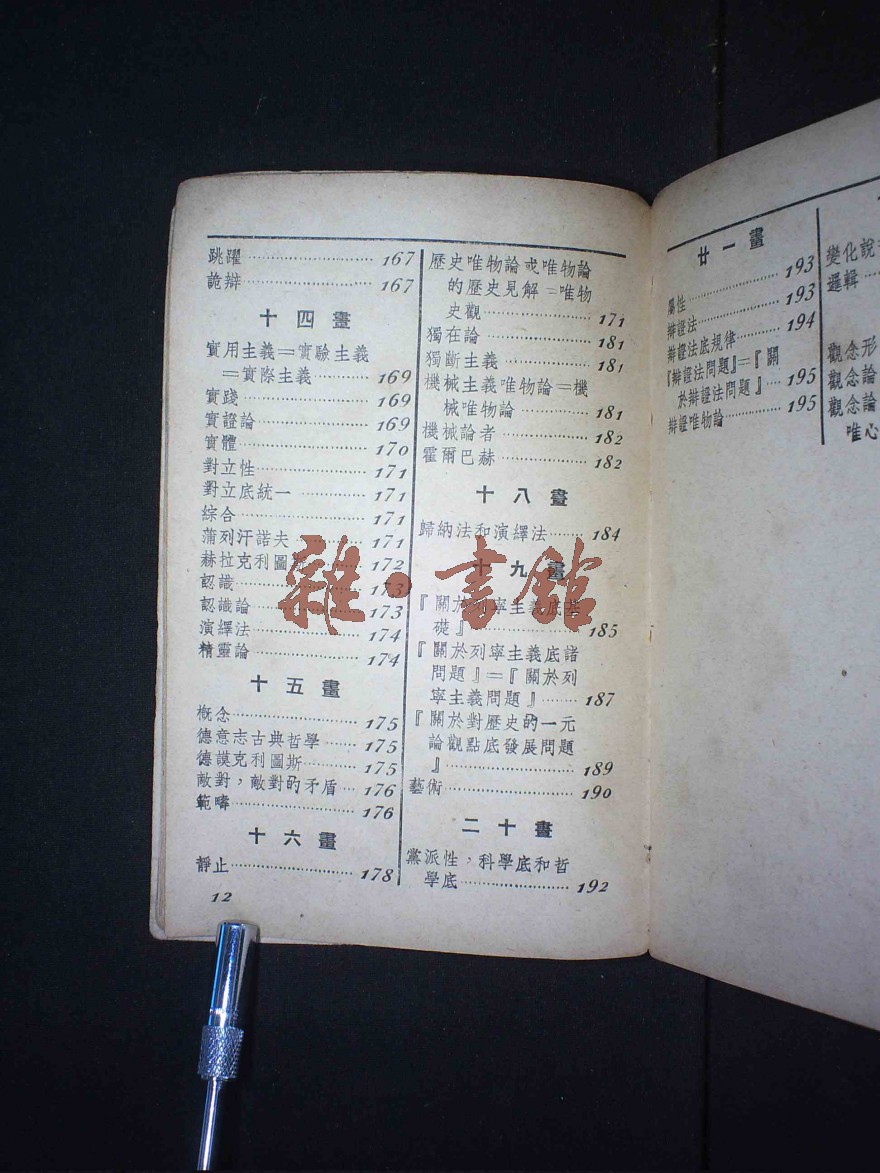 跳躍 167
詭辯 167
十四畫
實用主義＝實驗主義
＝實際主義 169
實踐 169
實證論 169
實體 170
對立性 171
對立底統一 171
綜合 171
蒲列汗諾夫 171
赫拉克利圖斯 172
認識 173
認識論 173
演繹法 174
精靈論 174
十五畫
槪念 175
德意志古典哲學 175
德謨克利圖斯 175
敵對，敵對的矛盾 176
範疇 176
十六畫
靜止 178
12
歷史唯物論或唯物論
的歷史見解＝唯物
史觀 171
獨在論 181
獨斷主義 181
機械主義唯物論＝機
械唯物論 181
機械論者 182
霍爾巴赫 182
十八畫
歸納法和演繹法 184
十九畫
『關於列寧主義底基
礎』 185
『關於列寧主義底諸
問題』＝『關於列
寧主義問題』 187
『關於對歷史的一元
論觀點底發展問題
』 189
藝術 190
二十畫
黨派性，科學底和哲
學底 192
雜·書館
廿一畫
屬性 193
辯證法 193
辯證法底規律 194
『辯證法問題』＝『關
於辯證法問題』 195
辯證唯物論 195
變化說
邏輯
觀念形
觀念論
觀念論
唯心